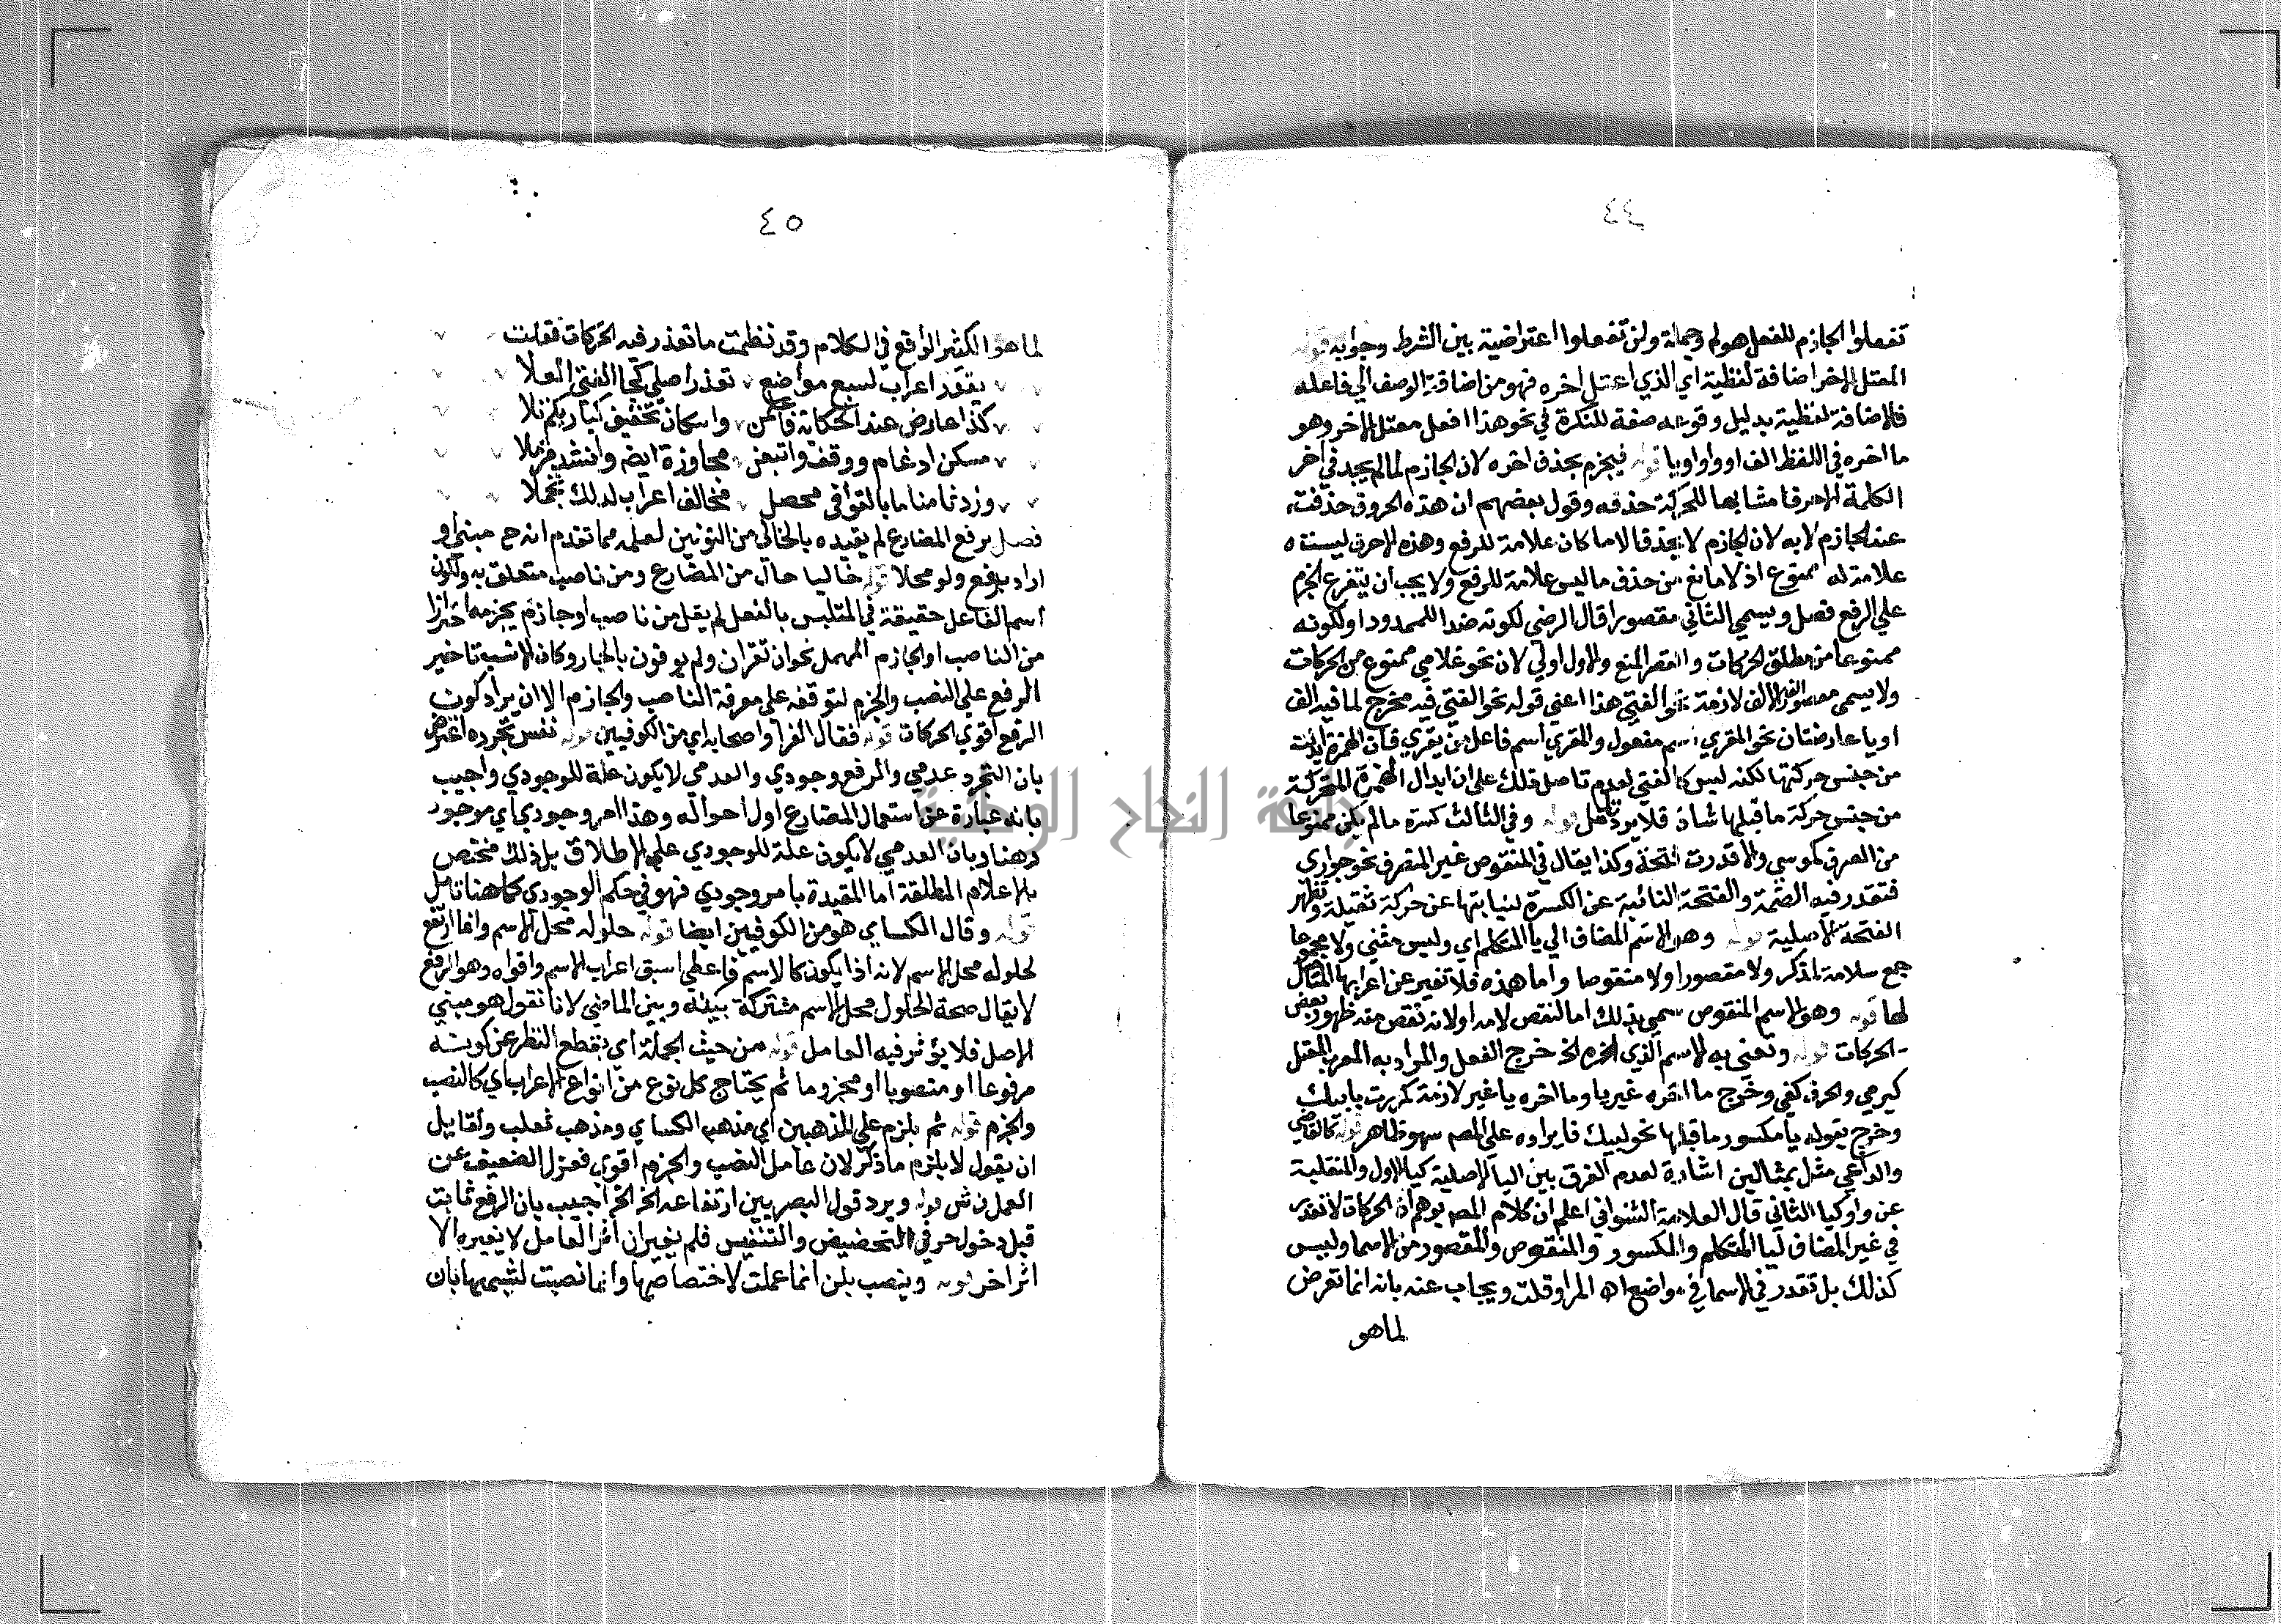 ٤٤
تفعلوا الجازم للفعل هو لم وجملة ولن تفعلوا اعتراضية بين الشرط وجوابه قوله
المعتل الاخر اضافة لفظية اي الذي اعتل اخره فهو من اضافة الوصف الي فاعله
فالاضافة لفظية بدليل وقوعه صفة للنكرة في نحو هذا افعل معتل الاخر وهو
ما اخره في اللفظ الف او واو او يا قوله فيجزم بحذف اخره لان الجازم لما لم يجد في اخر
الكلمة الا حرفا مشابها للحركة حذفه وقول بعضهم ان هذه الحروف حذفت
عند الجازم لا به لان الجازم لا يحذف الا ما كان علامة للرفع وهذه الاحرف ليست
علامة له ممنوع اذ لا مانع من حذف ما ليس علامة للرفع ولا يجب ان يتفرع الجزم
علي الرفع فصل ويسمي الثاني مقصورا قال الرضي لكونه ضد الممدود او لكونه
ممنوعا من مطلق الحركات والقصر المنع والاول اولي لان نحو غلامي ممنوع من الحركات
ولا يسمى مقصورا الالف لازمة نحو الفتي هذا اعني قوله نحو الفتي فيه مخرج لما فيه الف
او يا عارضتان نحو المقري اسم مفعول والمقري اسم فاعل من يقري فان الهمزة ابدلت
من جنس حركتها لكنه ليس كالفتي لعدم تاصل ذلك علي ان ابدال الهمزة المتحركة
من جنس حركة ما قبلها شاذ فلا يرد تامل قوله وفي الثالث كسرة ما لم يكن ممنوعا
من الصرف كموسي والا قدرت الفتحة وكذا يقال في المنقوص غير المنصرف نحو جواري
فتقدر فيه الضمة والفتحة النائبة عن الكسرة لنيابتها عن حركة ثقيلة وتظهر
الفتحة الاصلية قوله وهو الاسم المضاف الي يا المتكلم اي وليس مثني ولا مجموعا
جمع سلامة لمذكر ولا مقصورا ولا منقوصا واما هذه فلا تغير عن اعرابها المثال
لها قوله وهو الاسم المنقوص سمي بذلك اما لنقص لامه او لانه نقص منه ظهور بعض
الحركات قوله ونعني به الاسم الذي اخره الخ خرج الفعل والمراد به المعرب المعتل
كيرمي والحرف كفي وخرج ما اخره غير يا وما اخره يا غير لازمة كمررت بابيك
وخرج بقوله يا مكسور ما قبلها نحو لبيك فايراده علي المص سهو ظاهر قوله كالقاضي
والداعي مثل بمثالين اشارة لعدم الفرق بين اليا الاصلية كيا الاول والمنقلبة
عن واو كيا الثاني قال العلامة الشنواني اعلم ان كلام المص يوهم ان الحركات لا تقدر
في غير المضاف ليا المتكلم والمكسور والمنقوص والمقصور من الاسما وليس
كذلك بل تقدر في الاسما في مواضع اه المراد قلت ويجاب عنه بانه انما تعرض
لما هو
٤٥
لما هو الكثير الواقع في الكلام وقد نظمت ما تعذر فيه الحركات فقلت
يقدر اعراب لسبع مواضع تعذر اصلي كجا الفتي العلا
كذا عارض عند الحكاية فاعلمن واسكان تخفيف كبارئكم تلا
مسكن ادغام ووقف واتبعن مجاورة ايضه وانشد مزملا
وزد ثامنا ما بالقوافي محصل مخالف اعراب لذلك تجملا
فصل يرفع المضارع لم يقيده بالخالي من النونين لعلمه مما تقدم انه ح مبني او
اراد يرفع ولو محلا قوله خاليا حال من المضارع ومن ناصب متعلق به ولكون
اسم الفاعل حقيقة في المتلبس بالفعل لم يقل من ناصب او جازم يجزمه احترازا
من الناصب او الجازم المهمل نحو ان تقرآن ولم يوفون بالجار وكان الانسب تاخير
الرفع علي النصب والجزم لتوقفه علي معرفة الناصب والجازم الا ان يراد كون
الرفع اقوي الحركات قوله فقال الفرا واصحابه اي من الكوفيين قوله نفس تجرده اعترض
بان التجرد عدمي والرفع وجودي والعدمي لا يكون علة للوجودي واجيب
بانه عبارة عن استعمال المضارع اول احواله وهذا امر وجودي اي موجود
ذهنا وبان العدمي لا يكون علة للوجودي علي الاطلاق بل ذلك مختص
بالاعدام المطلقة اما المقيدة بامر وجودي فهو في حكم الوجودي كما هنا تامل
قوله وقال الكساي هو من الكوفيين ايضا قوله حلوله محل الاسم وانما ارتفع
لحلوله محل الاسم لانه اذا يكون كالاسم فاعطي اسبق اعراب الاسم واقواه وهو الرفع
لا يقال صحة الحلول محل الاسم مشتركة بينه وبين الماضي لانا نقول هو مبني
الاصل فلا يؤثر فيه العامل قوله من حيث الجملة اي بقطع النظر عن كونه
مرفوعا او منصوبا او مجزوما ثم يحتاج كل نوع من انواع الاعراب اي كالنصب
والجزم قوله ثم يلزم علي المذهبين اي مذهب الكساي ومذهب ثعلب ولقايل
ان يقول لا يلزم ما ذكر لان عامل النصب والجزم اقوي فعزل الضعيف عن
العمل ش قوله ويرد قول البصريين ارتفاعه الخ اجيب بان الرفع ثابت
قبل دخول حرفي التحضيض والتنفيس فلم يغيرا اذ اثر العامل لا يغيره الا
اثر اخر قوله وينصب بلن انما عملت لاختصاصها وانما نصبت لشبهها بان
جامعة النجاح الوطنية